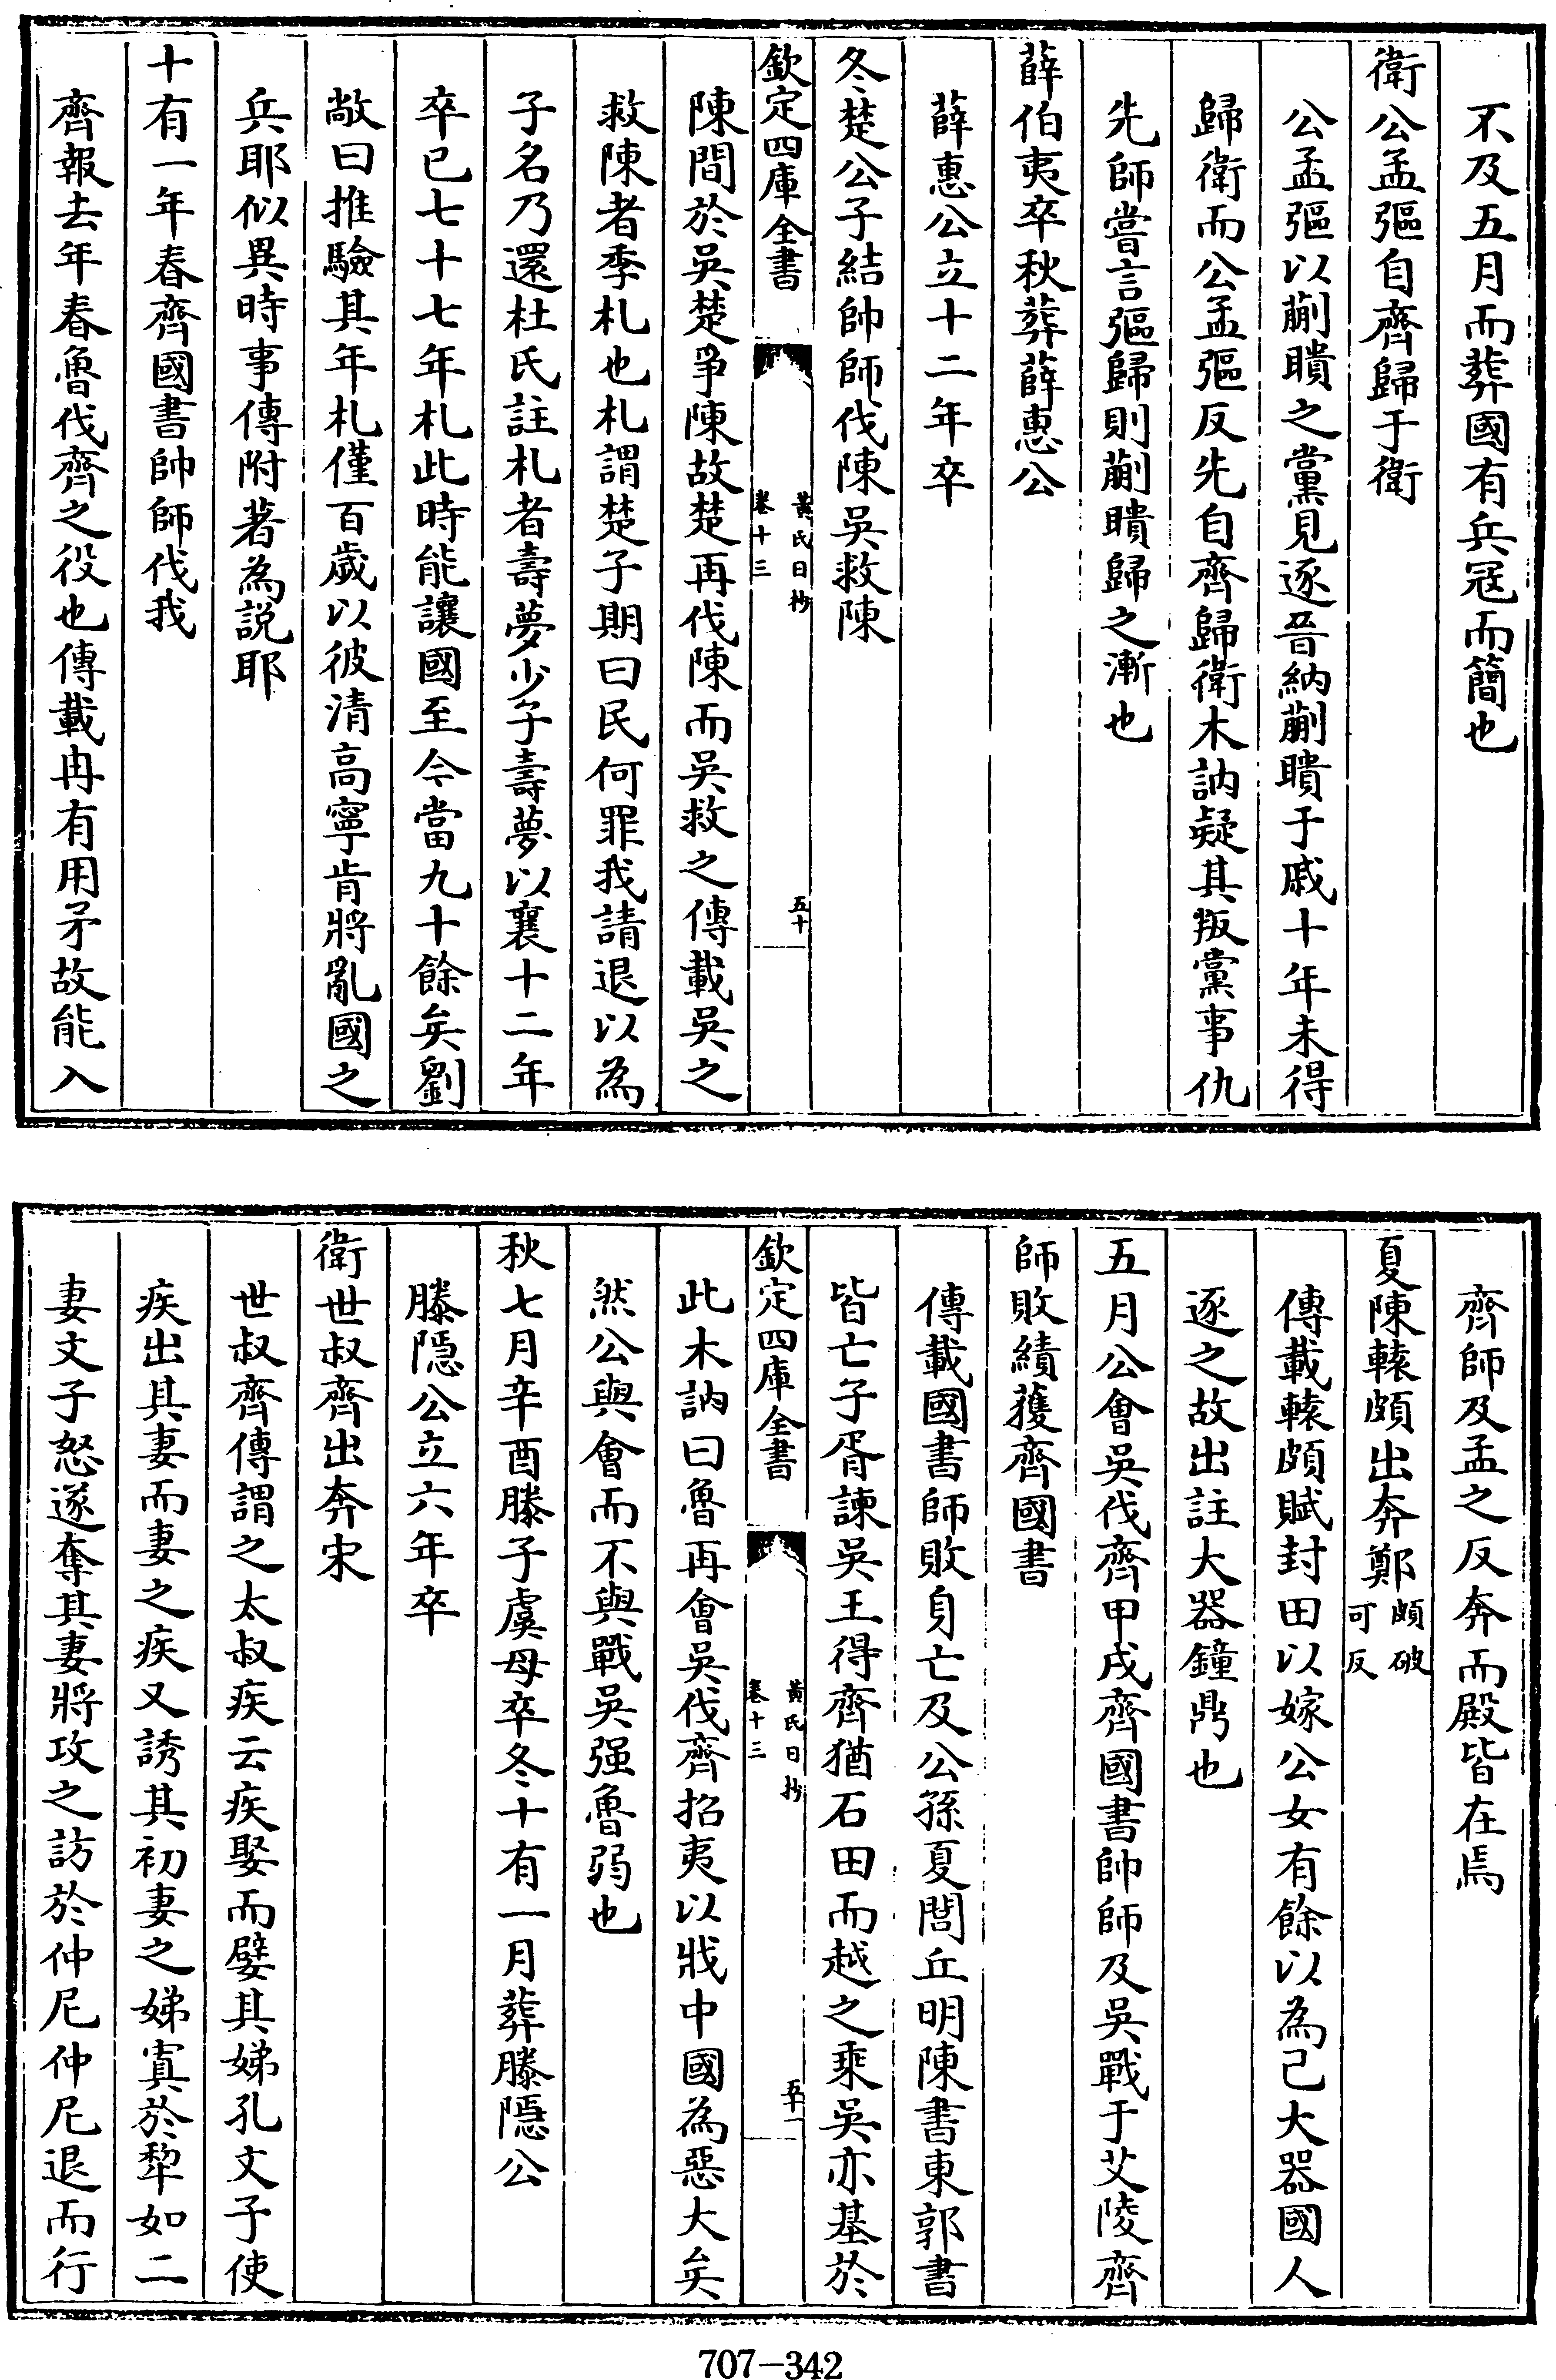 不及五月而葬國有兵冦而簡也
衛公孟彄自齊歸于衛
公孟彄以蒯聵之黨見逐晉納蒯聵于戚十年未得
歸衛而公孟彄反先自齊歸衛木訥疑其叛黨事仇
先師嘗言彄歸則蒯聵歸之漸也
薛伯夷卒秋葬薛惠公
薛惠公立十二年卒
冬楚公子結帥師伐陳吳救陳
欽定四庫全書
黃氏日抄
卷十三
五十
陳間於吳楚爭陳故楚再伐陳而吳救之傳載吳之
救陳者季札也札謂楚子期曰民何罪我請退以為
子名乃還杜氏註札者壽夢少子壽夢以襄十二年
卒已七十七年札此時能讓國至今當九十餘矣劉
敞曰推驗其年札僅百歲以彼清高寧肯將亂國之
兵耶似異時事傳附著為説耶
十有一年春齊國書帥師伐我
齊報去年春魯伐齊之役也傳載冉有用矛故能入
齊師及孟之反奔而殿皆在焉
夏陳轅頗出奔鄭頗破可反
傳載轅頗賦封田以嫁公女有餘以為己大器國人
逐之故出註大器鐘鼎也
五月公會吳伐齊甲戌齊國書帥師及吳戰于艾陵齊
師敗績獲齊國書
傳載國書師敗身亡及公孫夏閭丘明陳書東郭書
皆亡子胥諫吳王得齊猶石田而越之乘吳亦基於
欽定四庫全書
黃氏日抄
卷十三
五十一
此木訥曰魯再會吳伐齊招夷以戕中國為惡大矣
然公與會而不與戰吳强魯弱也
秋七月辛酉滕子虞母卒冬十有一月葬滕隱公
滕隱公立六年卒
衛世叔齊出奔宋
世叔齊傳謂之太叔疾云疾娶而嬖其娣孔文子使
疾出其妻而妻之疾又誘其初妻之娣寘於犂如二
妻文子怒遂奪其妻將攻之訪於仲尼仲尼退而行
707-342